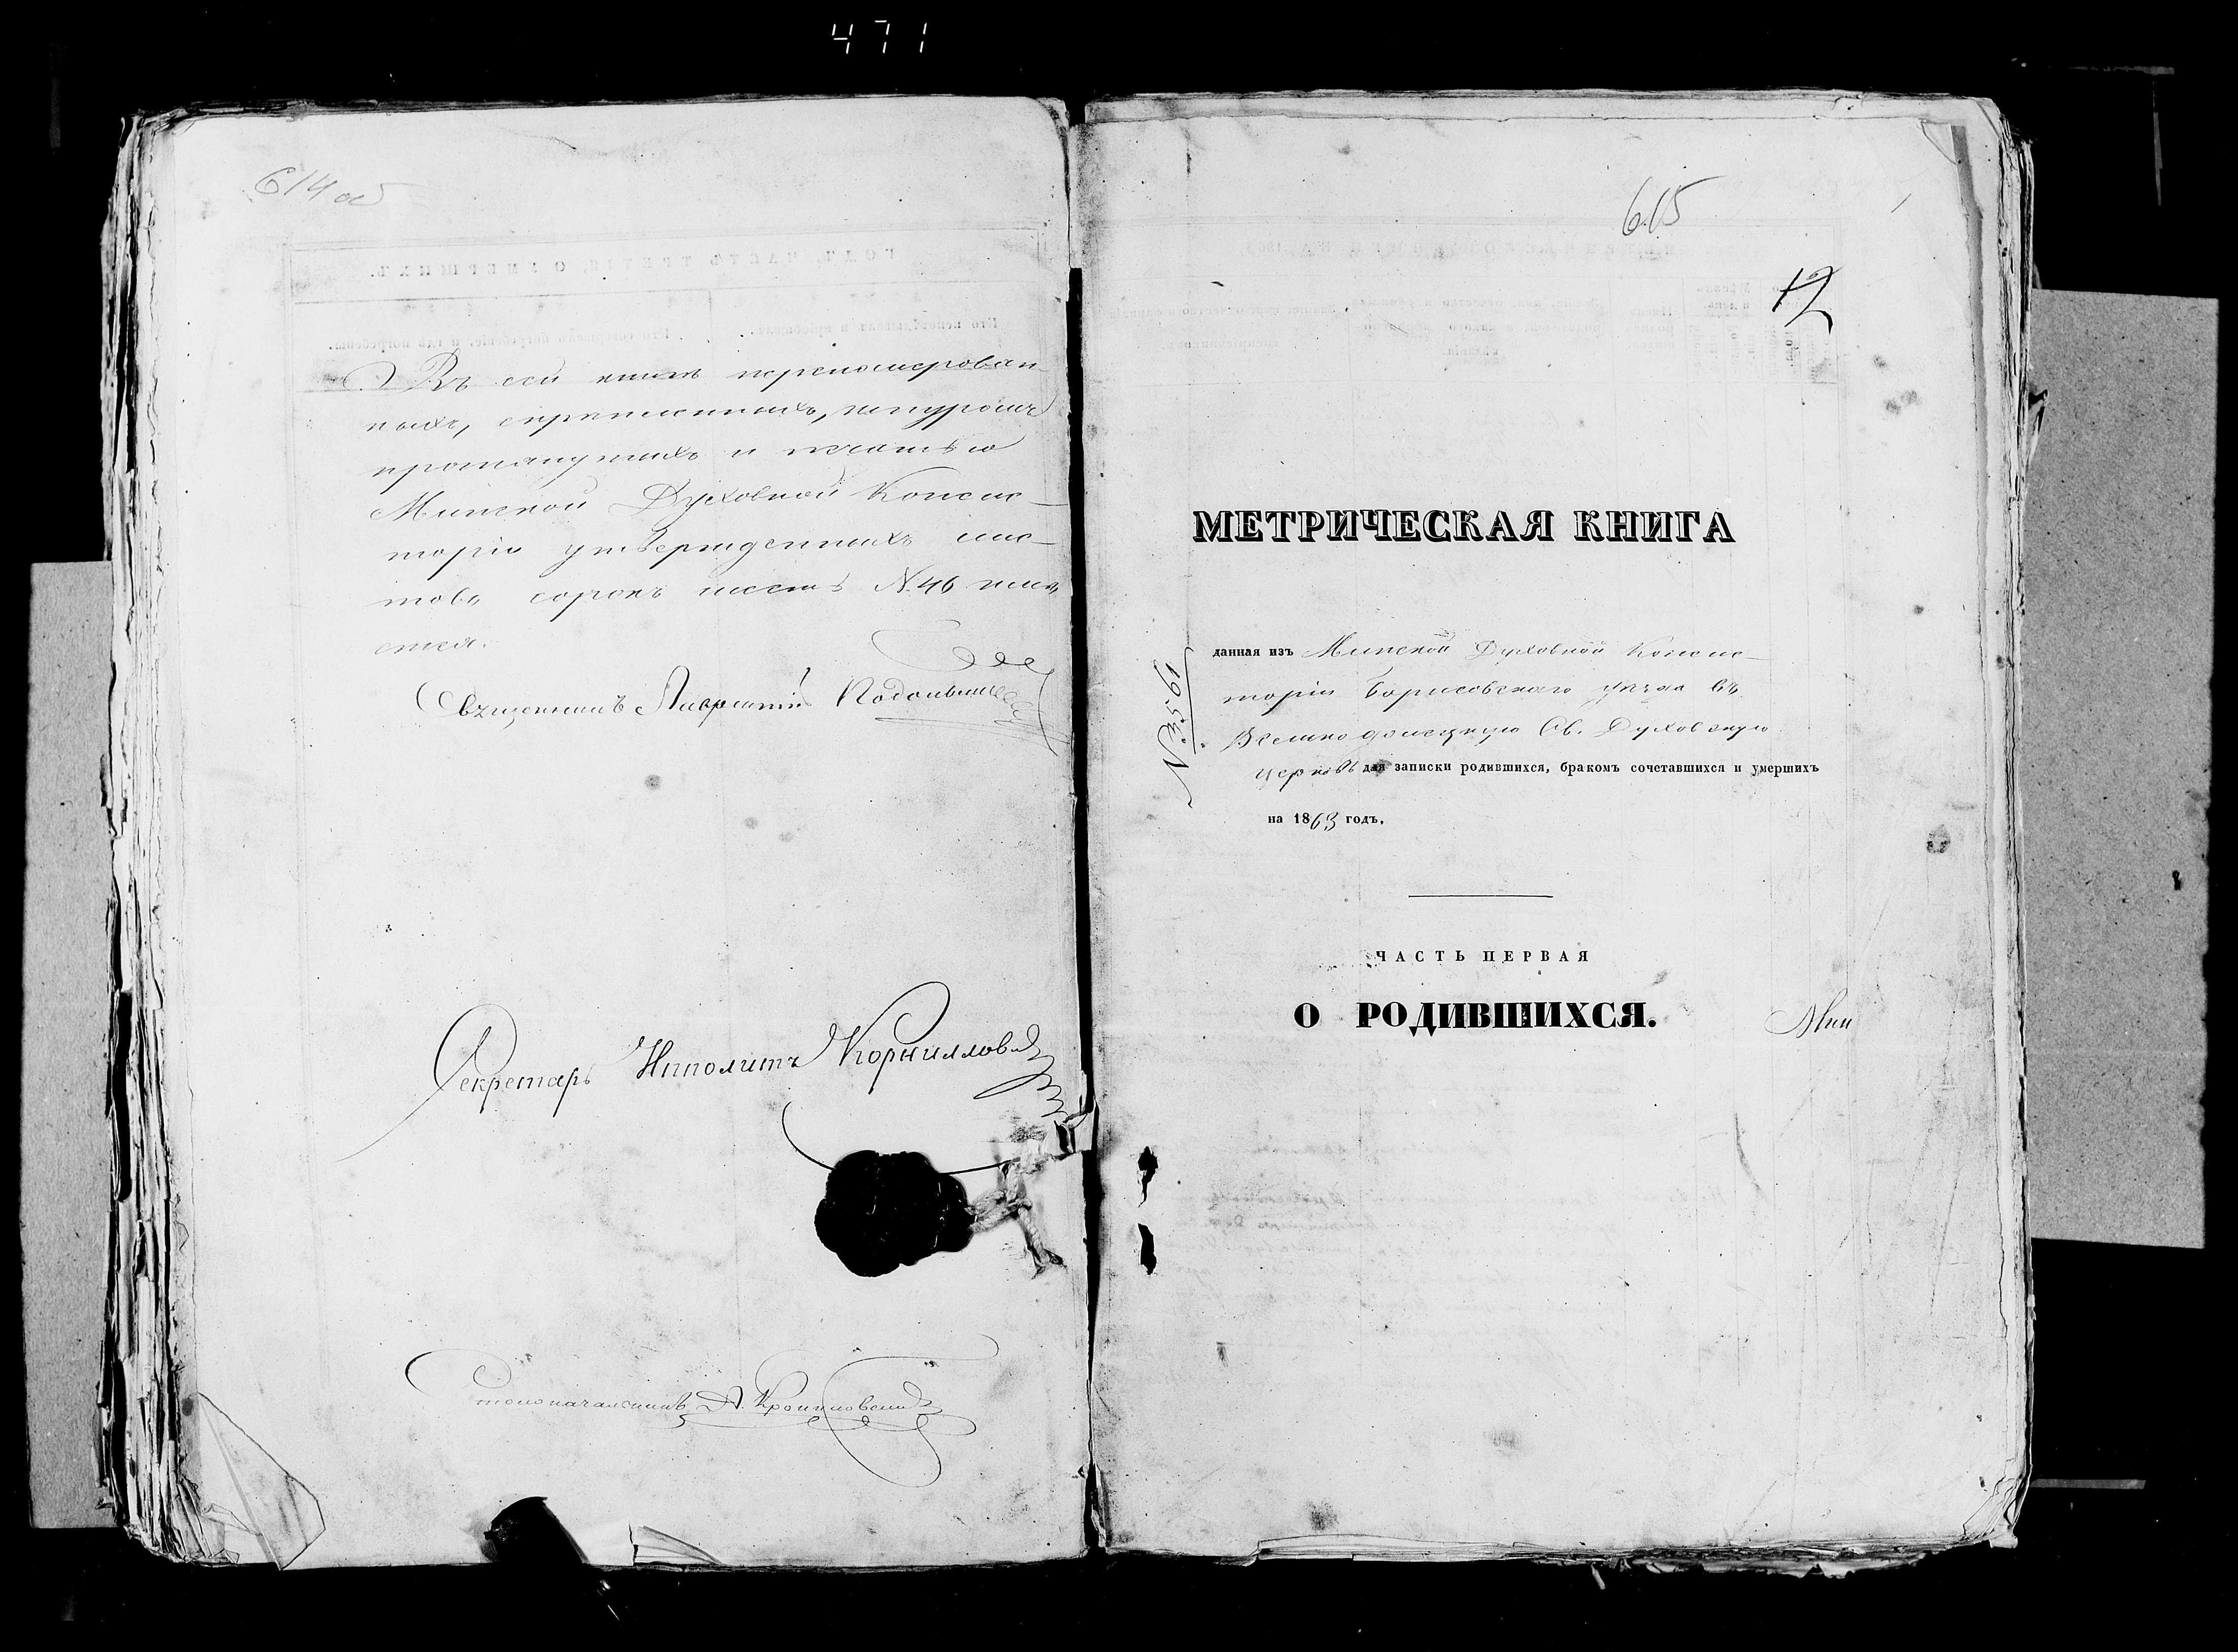 471
614 об
Въ сей книгѣ перенумерован-
ныхъ, скрѣпленныхъ, шнуромъ
протянутыхъ и печатью
Минской Духовной Консис-
торіи утвержденныхъ лис-
товъ сорокъ шесть № 46 имѣ-
ется.
Священникъ Лаврентій
Секретарь Ипполитъ Корнилловъ
Столоначальникъ А.
615
12
МЕТРИЧЕСКАЯ КНИГА
№ 3561
данная изъ Минской Духовной Консис-
торіи Борисовскаго уѣзда въ
Св. Духовскую
церковь для записки родившихся, бракомъ сочетавшихся и умершихъ
на 1863 годъ.
ЧАСТЬ ПЕРВАЯ
О РОДИВШИХСЯ.
Мин